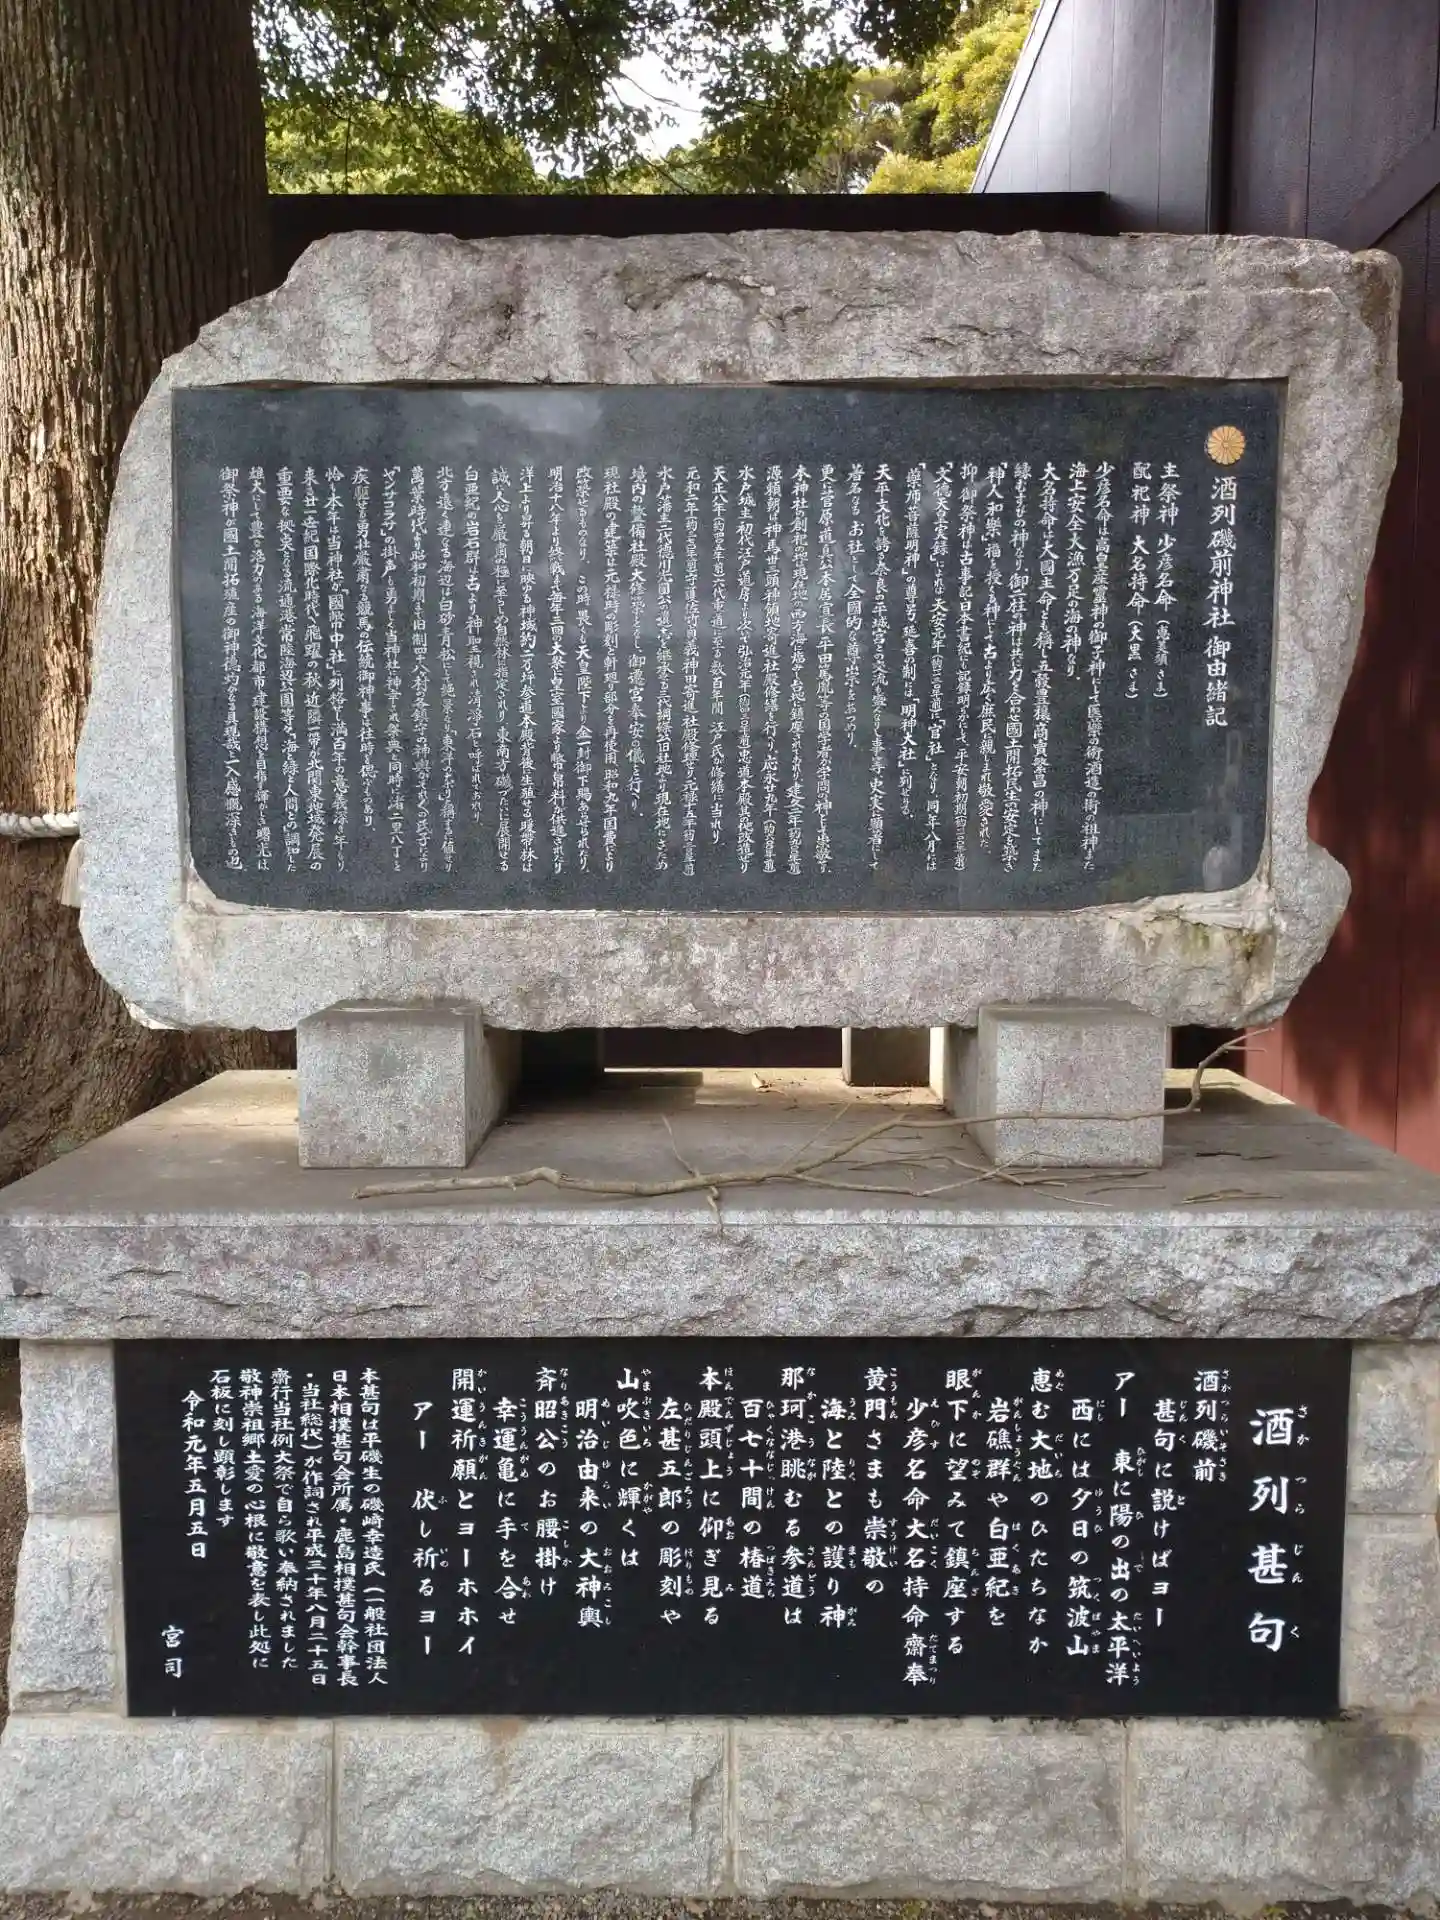 酒列磯前神社 御由緒記
主祭神 少彦名命(恵美須さま)
配祀神 大名持命(大黒さま)
少彦名命は高皇産霊神の御子神にして医薬の術酒造の術の祖神また
海上安全大漁万足の海の神なり
大名持命は大國主命とも稱へ五穀豊穣商賣繁昌の神にしてまた
縁むすびの神なり、御二柱の神は共に力を合わせ國土開拓民生の安定を築き
「神人和樂」福を授くる神にして古より広く庶民に親しまれ敬愛された、
抑々御祭神は古事記日本書紀にも記録明らかにして平安朝初期
「文徳天皇実録」によれば天安元年に「官社」となり、同年八月には
「薬師菩薩明神」の尊号、延喜の制には「明神大社」に列せる、
天平文化を誇る奈良の平城宮との交流も盛んなりし事等史実に顕著にして
著名なるお社として全國的な尊崇をあつめり、
更に菅原道真公本居宣長平田篤胤等の国学者が学問の神として崇敬せり、
本神社の創祀の地は現在地の西方
源頼朝は神馬
水戸城主初代江戸道房
天正八年
元和二年
水戸藩主二代徳川光圀公の遺志を継承せる三代綱條公旧社地より現在地にさだめ
境内の整備社殿大修築をなし、御遷宮奉安の儀を行へり、
現社殿の建築は元禄時の彫刻と軒廻り部分を再使用、昭和九年国費により
改築なるものなり、この時畏くも天皇陛下より金一封御下賜あらせられたり、
明治十八年より終戦まで毎年三回の大祭に皇室國家より幣帛料が供進されたり
洋上より昇る朝日に映ゆる神域約二万坪参道本殿背後に生殖せる暖帯林は
誠に人心を厳粛の極に至らしめ自然林に指定され、東南方磯づたいに展開せる
白亜紀の岩石群は古より神聖視され清浄石と呼ばれており、
北方遠く連なる海辺は白砂青松にして絶景なり
萬葉時代より昭和初期まで旧制四十八ヶ村の各鎮守の神輿がそれぞれの氏子により
「ヤンサコラサ」の掛声も勇ましく当神社に神幸され祭典と同時に渚二里八丁を
疾駆せる勇壮厳粛なる競馬の伝統御神事は往時を偲ぶものあり、
恰も本年は当神社が「國幣中社」に列格して満百年の意義深き年なり
来る廿一世紀国際化時代へ飛躍の秋、近隣一帯が北関東地域発展の
重要な拠点となる流通港、常陸海浜公園等が「海と緑と人間」との調和した
雄大にして豊かな活力のある海洋文化都市建設構想を目指す輝かしき曙光は
御祭神が國土開拓殖産の御神徳灼かなる具現哉と一入感慨深きもの也、
酒列甚句
酒列磯前
甚句に説けばヨー
アー 東に陽の出の太平洋
西には夕日の筑波山
恵む大地のひたちなか
岩礁群や白亜紀を
眼下に望みて鎮座する
少彦名命大名持命齋奉
黄門さまも崇敬の
海と陸との護り神
那珂港眺むる参道は
百七十間の椿道
本殿頭上に仰ぎ見る
左甚五郎の彫刻や
山吹色に輝くは
明治由来の大神輿
斉昭公のお腰掛け
幸運亀に手を合せ
開運祈願とヨーホホイ
アー 伏し祈るヨー
本甚句は平磯生の磯﨑幸造氏(一般社団法人
日本相撲甚句会所属・鹿島相撲甚句会幹事長
・当社総代)が作詞され平成三十年八月二十五日
齋行当社例大祭で自ら歌い奉納されました
敬神崇祖郷土愛の心根に敬意を表し此処に
石板に刻し顕彰します
令和元年五月五日
宮司